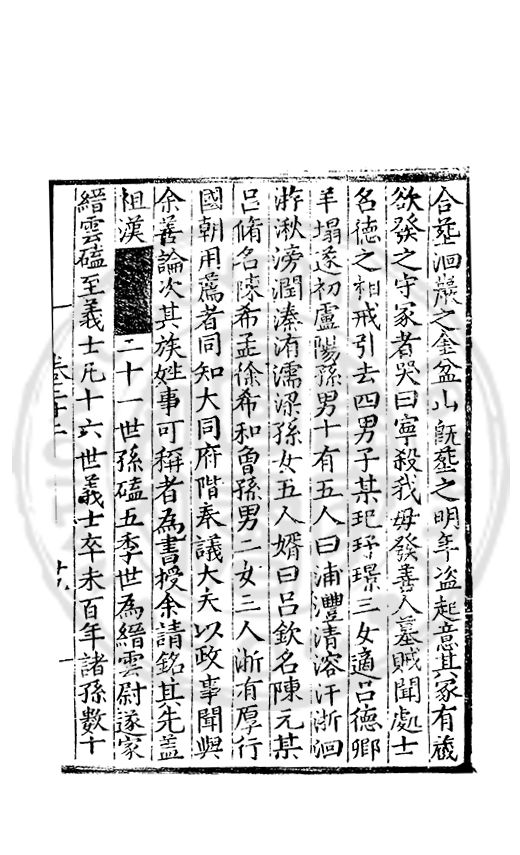 合塟洄巖之金盆山既塟之明年盗起意其冢有藏
欲發之守冢者哭曰寧殺我毋發善人墓賊聞處士
名德之相戒引去四男子某玘玗璟三女適吕德卿
羊塌遂初盧陽孫男十有五人曰浦灃清溶汗浙洄
游湫滂潤溱洧濡梁孫女五人婿曰吕欽名陳元某
吕脩名陳希孟徐希和魯孫男二女三人浙有厚行
國朝用薦者同知大同府階奉議大夫以政事聞與
余善論次其族姓事可稱者為書授余請銘其先盖
祖漢二十一世孫磕五季世為縉雲尉遂家
縉雲磕至義士凡十六世義士卒未百年諸孫數十
卷之二十二
廿八